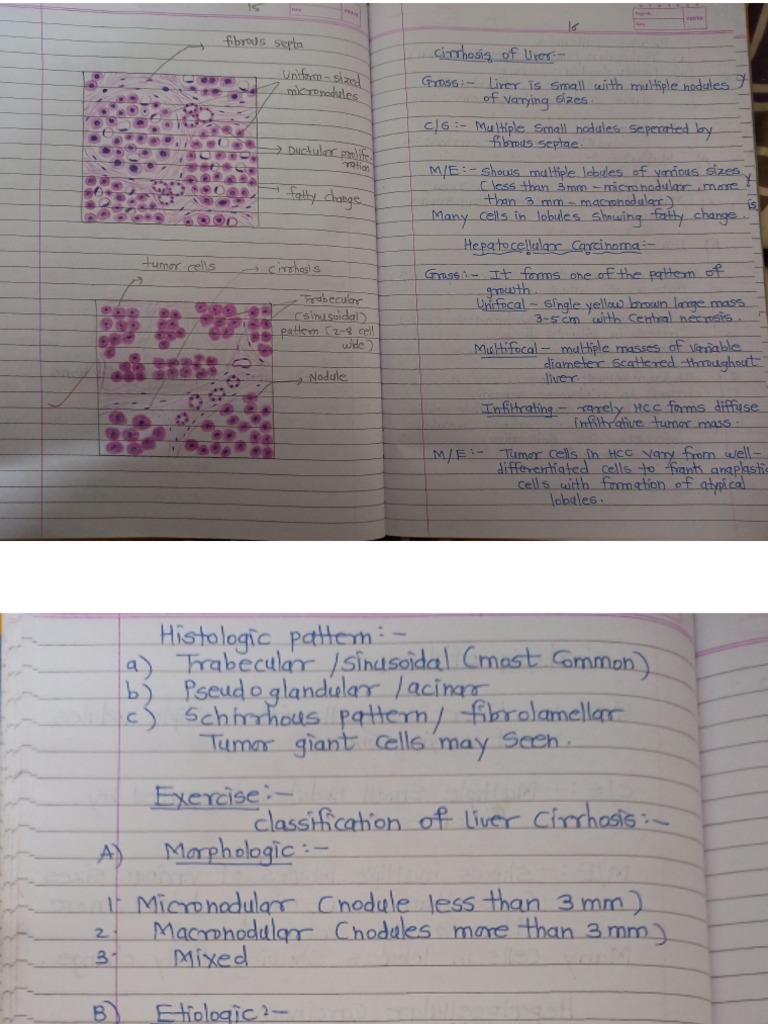 15
fibrous septa
Uniform-sized
micronodules
Ductular prolife-
ration
fatty change
tumor cells
cirrhosis
Trabecular
(sinusoidal)
pattern (2-8 cell
wide)
Nodule
16
Cirrhosis of Liver:-
Gross:- Liver is small with multiple nodules
of varying sizes.
C/S:- Multiple small nodules seperated by
fibrous septae.
M/E:- shows multiple lobules of various sizes
(less than 3mm-micronodular, more
than 3 mm-macronodular)
Many cells in lobules showing fatty change.
is
Hepatocellular Carcinoma:-
Gross:- It forms one of the pattern of
growth.
Unifocal - single yellow brown large mass
3-5cm with central necrosis.
Multifocal - multiple masses of variable
diameter scattered throughout
liver.
Infiltrating - rarely HCC forms diffuse
infiltrative tumor mass.
M/E:- Tumor cells in HCC vary from well-
differentiated cells to frank anaplastic
cells with formation of atypical
lobules.
Histologic pattern:-
a) Trabecular /sinusoidal (most common)
b) Pseudoglandular /acinar
c) Schirrhous pattern/ fibrolamellar
Tumor giant cells may seen.
Exercise:-
classification of liver Cirrhosis:-
A) Morphologic:-
1. Micronodular (nodule less than 3mm)
2. Macronodular (nodules more than 3mm)
3. Mixed
B) Etiologic:-